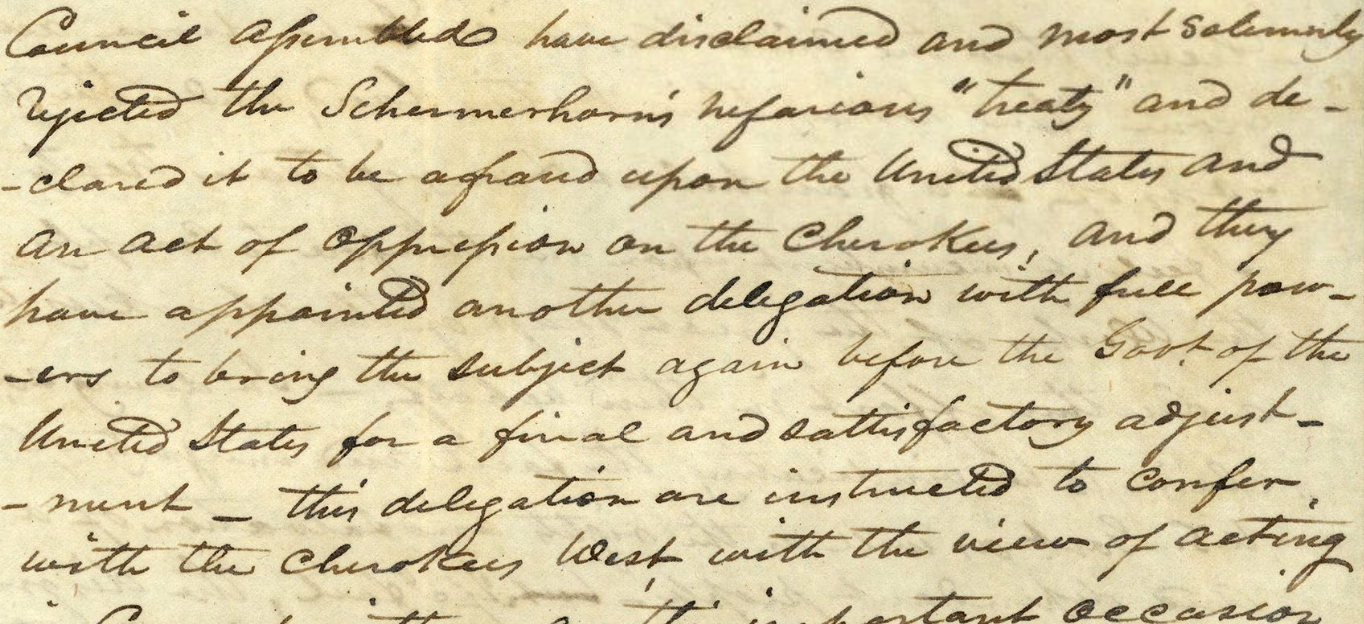 Council assembled have disclaimed and most solemnly
rejected the Schermerhorn's nefarious "treaty" and de-
-clared it to be a fraud upon the United States and
an act of oppression on the Cherokees, and they
have appointed another delegation with full pow-
-ers to bring the subject again before the Govt. of the
United States for a final and sattisfactory adjust-
-ment - this delegation are instructed to confer,
with the Cherokees West with the view of acting
important occasion